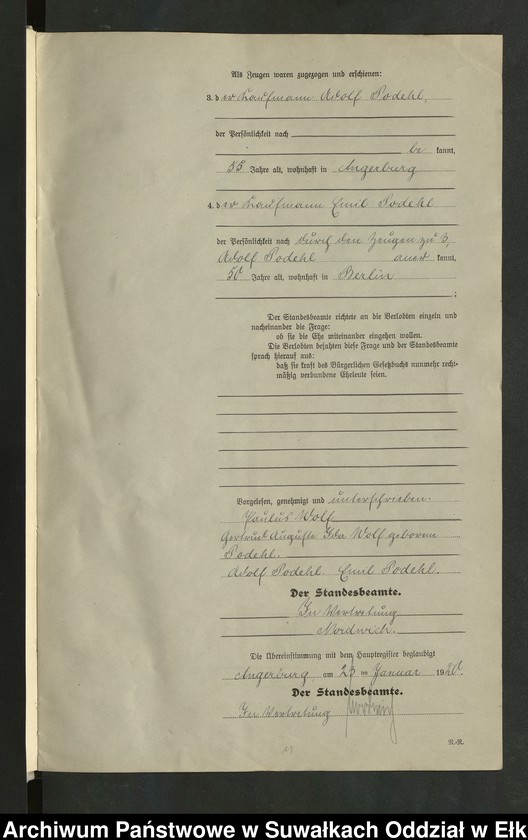 Als Zeugen waren zugezogen und erschienen:
3. der Kaufmann Adolf Podehl,
der Persönlichkeit nach
be kannt,
55 Jahre alt, wohnhaft in Angerburg
4. der Kaufmann Emil Podehl
der Persönlichkeit nach durch den Zeugen zu 3,
Adolf Podehl aner kannt,
50 Jahre alt, wohnhaft in Berlin
;
Der Standesbeamte richtete an die Verlobten einzeln und
nacheinander die Frage:
ob sie die Ehe miteinander eingehen wollen.
Die Verlobten bejahten diese Frage und der Standesbeamte
sprach hierauf aus:
daß sie kraft des Bürgerlichen Gesetzbuchs nunmehr recht-
mäßig verbundene Eheleute seien.
Vorgelesen, genehmigt und unterschrieben.
Paulus Wolf.
Gertrud Auguste Ida Wolf geborene
Podehl.
Adolf Podehl. Emil Podehl.
Der Standesbeamte.
In Vertretung
Nordwich.
Die Übereinstimmung mit dem Hauptregister beglaubigt
Angerburg am ten Januar 1920.
Der Standesbeamte.
In Vertretung
R.-R.
Archiwum Państwowe w Suwałkach Oddział w Ełk